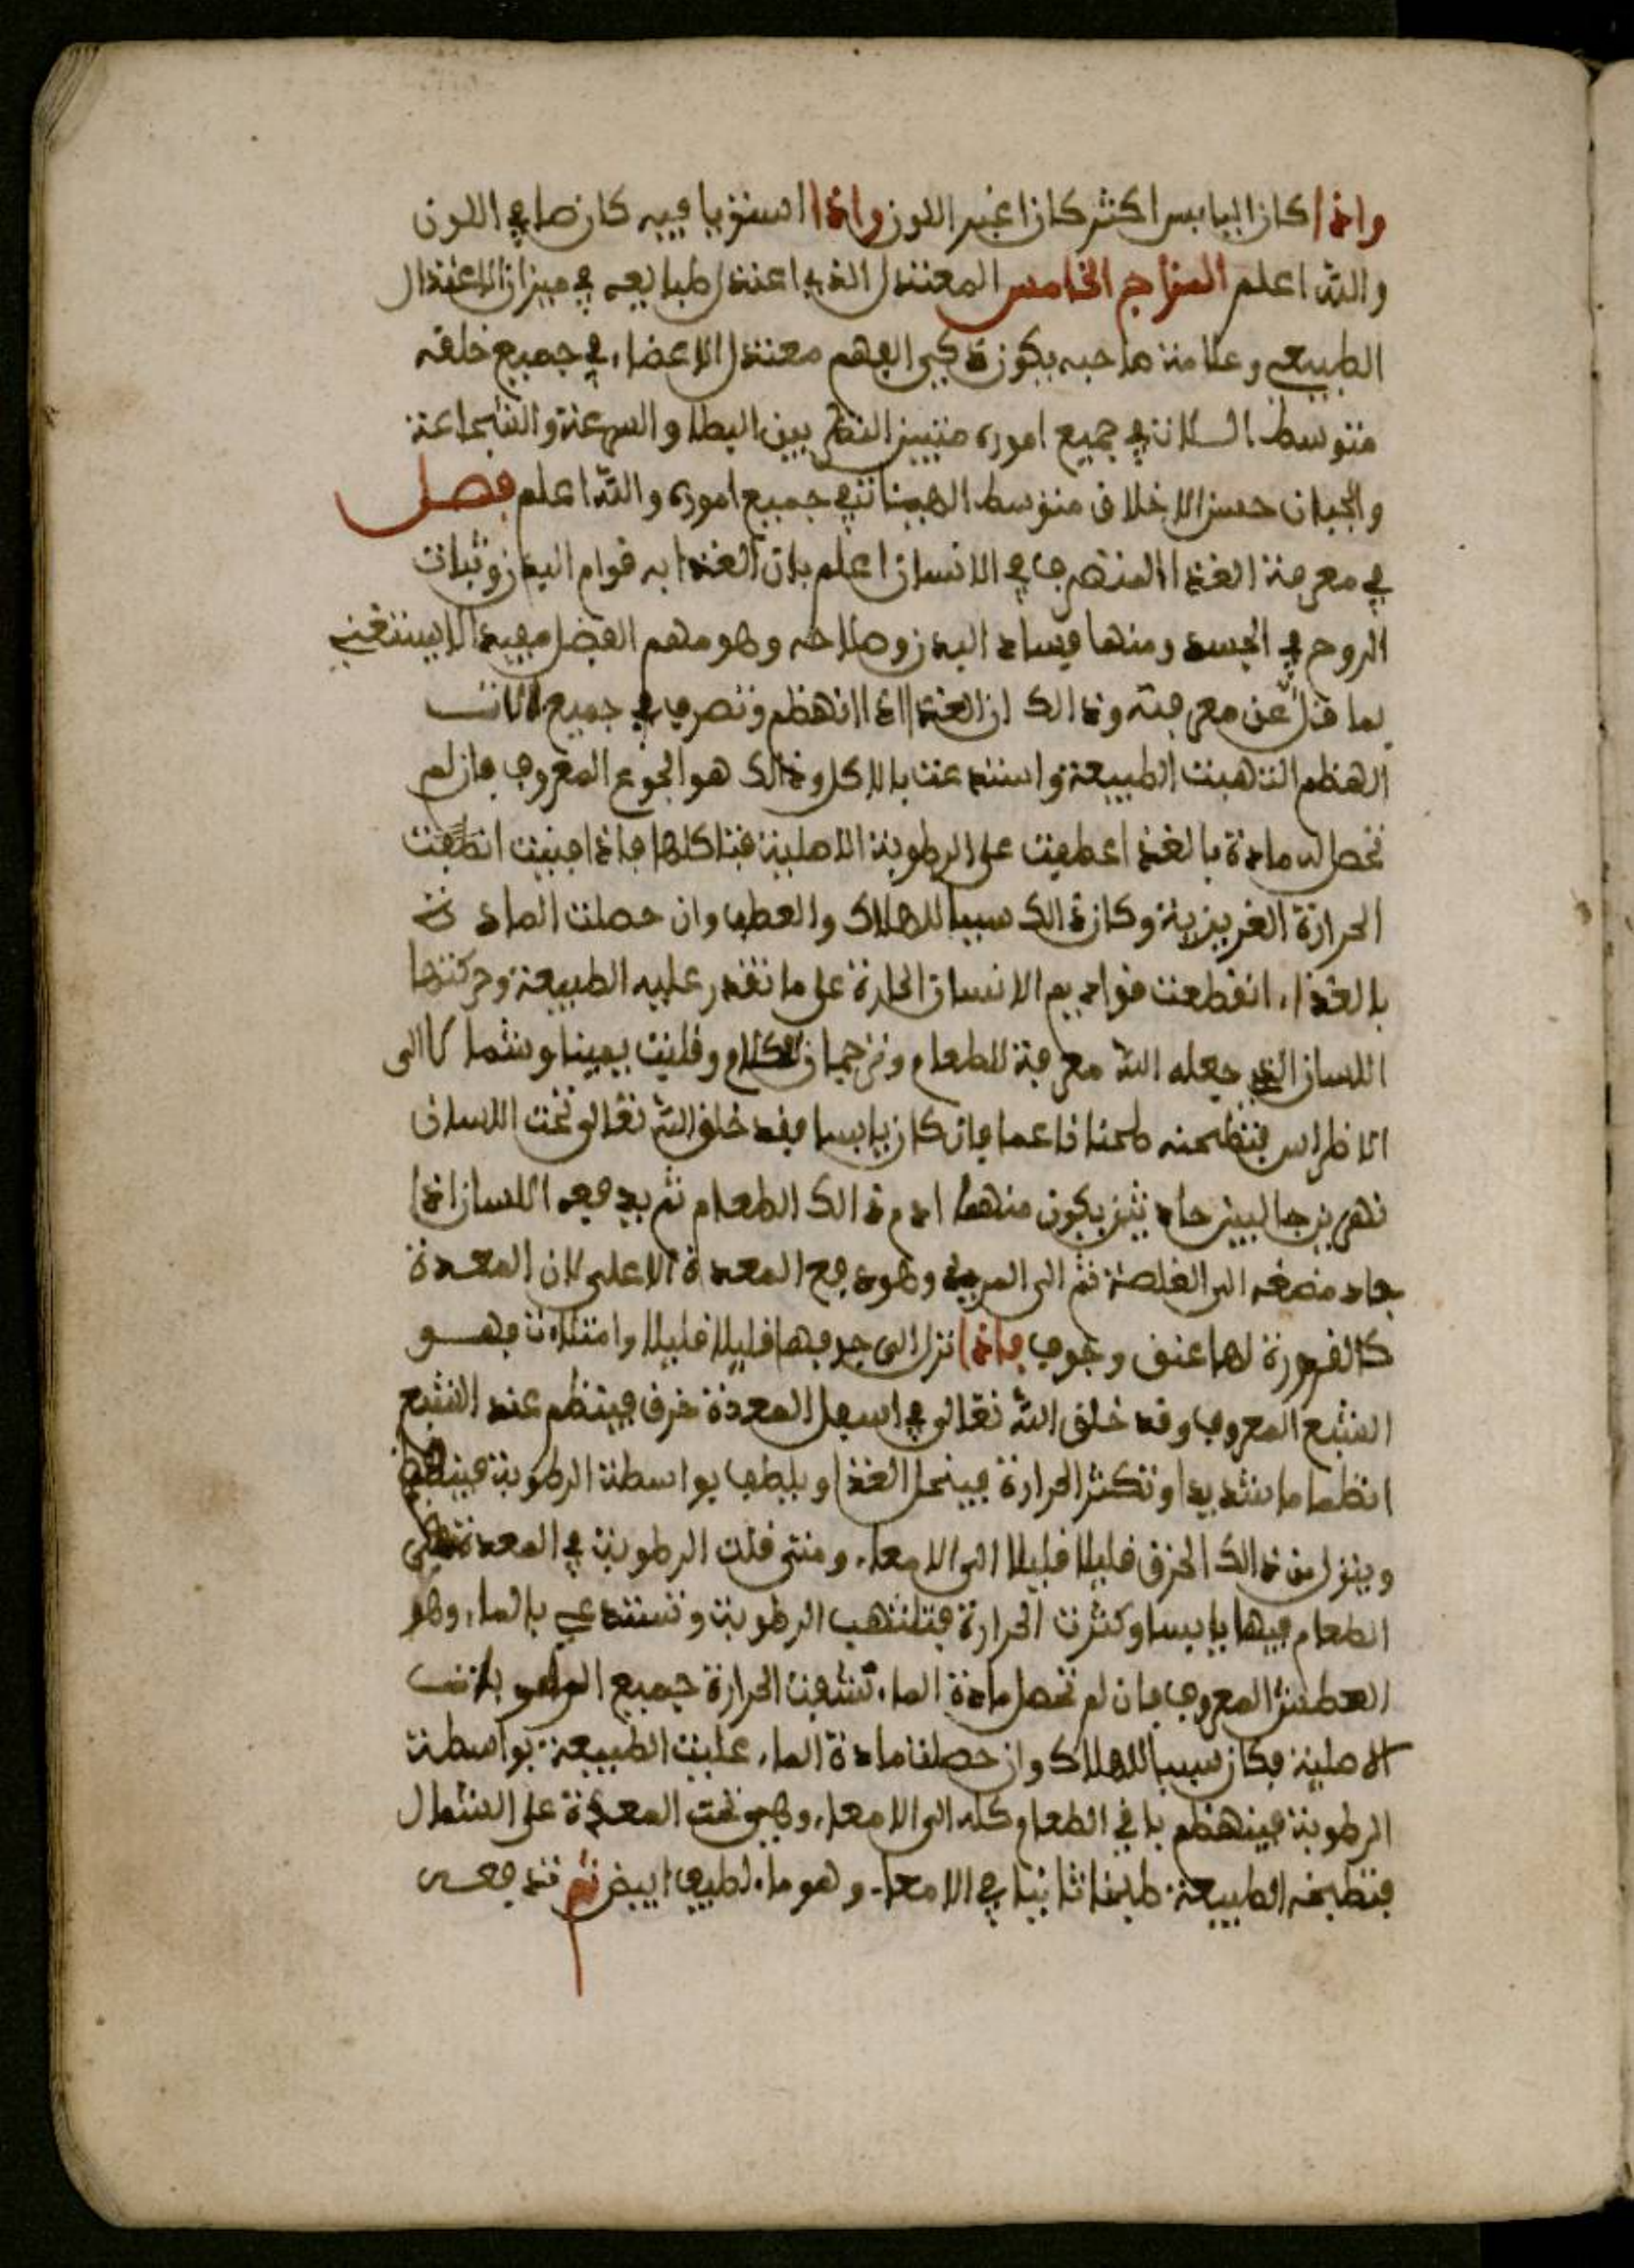 واذا كان اليابس اكثر كان اغبر اللون واذا استويا فيه كان صافي اللون
والله اعلم المزاج الخامس المعتدل الذي اعتدل طبايعه في ميزان الاعتدال
الطبيعي وعلامة صاحبه يكون ذكي الفهم معتدل الاعضاء في جميع خلقه
متوسط الحالات في جميع اموره متيين النظر بين البطا والسرعة والشجاعة
والجبان حسن الاخلاق متوسط الهيئات في جميع اموره والله اعلم فصل
في معرفة الغذا المتصرف في الانسان اعلم بان الغذا به قوام البدن وثبات
الروح في الجسد ومنها فساد البدن وصلاحه وهو مهم الفضل مفيد لا يستغني
بما قل عن معرفته وذالك ان الغذا اذا انهظم وتصرف في جميع الات
الهظم التهبت الطبيعة واستدعت بالاكل وذالك هو الجوع المعروف فان لم
تحصل له مادة بالغذا عطفت على الرطوبة الاصلية فتاكلها فاذا فنيت انطفت
الحرارة الغريزية وكان ذالك سببا للهلاك والعطب وان حصلت المادة
بالغذاء انقطعت فواد يم الانسان الحارة على ما تقدر عليه الطبيعة وحركتها
اللسان الذي جعله الله معرفة للطعام وترجمان الكلام وقلبت يمينا وشمالا الى
الاظراس فتطحنه طحنا ناعما فان كان يابسا فقد خلق الله تعالى تحت اللسان
نهرين جاليين حادثين يكون منهما ادم ذالك الطعام ثم يدفعه اللسان اذا
جاد مضغه الى الغلصة ثم الى المري وهو فع المعدة الاعلى لان المعدة
كالقرورة لها عنق وجوف فاذا نزل الى جوفها قليلا قليلا وامتلات فهو
الشبع المعروف وقد خلق الله تعالى في اسفل المعدة خرق فينظم عند الشبع
انظماما شديدا وتكثر الحرارة فينحل الغذا ويلطف بواسطة الرطوبة فينطبخ
وينزل من ذالك الخرق قليلا قليلا الى الامعاء ومتى قلت الرطوبة في المعدة بقي
الطعام فيها يابسا وكثرت الحرارة فتلتهب الرطوبة وتستدعي بالماء وهو
العطش المعروف فان لم تحصل مادة الماء نشفت الحرارة جميع الرطوبات
الاصلية فكان سببا للهلاك وان حصلت مادة الماء غلبت الطبيعة بواسطة
الرطوبة فينهظم باقي الطعام كله الى الامعاء وهي تحت المعدة على الشمال
فتطبخه الطبيعة طبخا ثانيا في الامعاء وهو ماء لطيف ابيض ثم تدفعه